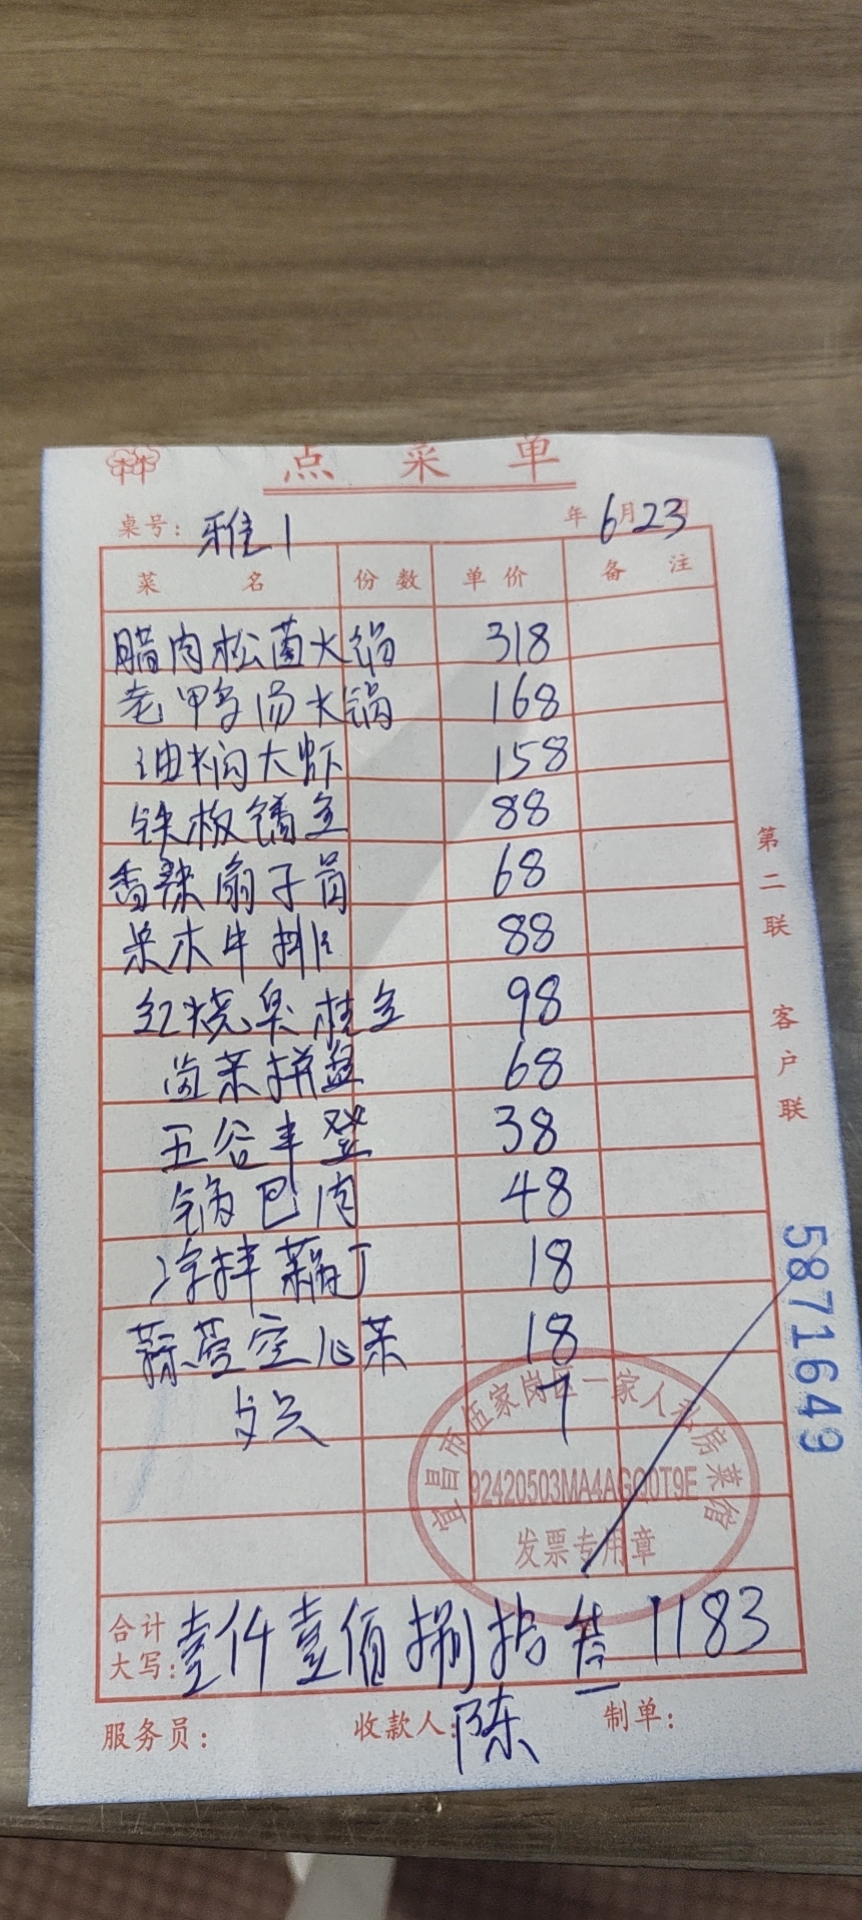 点菜单
桌号: 雅1 年6月23日
菜名 份数 单价 备注
腊肉松菌火锅 318
老鸭汤火锅 168
油焖大虾 158
铁板鐇鱼 88
香辣扇子骨 68
果木牛排 88
红烧臭桂鱼 98
卤菜拼盘 68
五谷丰登 38
锅巴肉 48
凉拌藕丁 18
蒜蓉空心菜 18
7
宜昌市伍家岗区一家人私房菜馆
92420503MA4AGQ0T9E
发票专用章
合计
大写: 壹仟壹佰捌拾叁 1183
服务员: 收款人: 陈 制单:
第二联 客户联
5871649